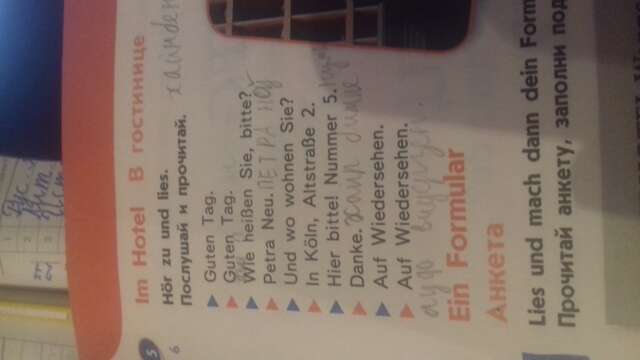 27
Рус
Лит
Ист
5
6
Im Hotel В гостинице
Hör zu und lies.
Послушай и прочитай. хайнбен
Guten Tag.
Guten Tag.
Wie heißen Sie, bitte?
Petra Neu. ПЕТРА НОЙ
Und wo wohnen Sie?
In Köln, Altstraße 2.
Hier bitte! Nummer 5.
Danke.
Auf Wiedersehen.
Auf Wiedersehen.
Ein Formular
Анкета
Lies und mach dann dein Form
Прочитай анкету, заполни под